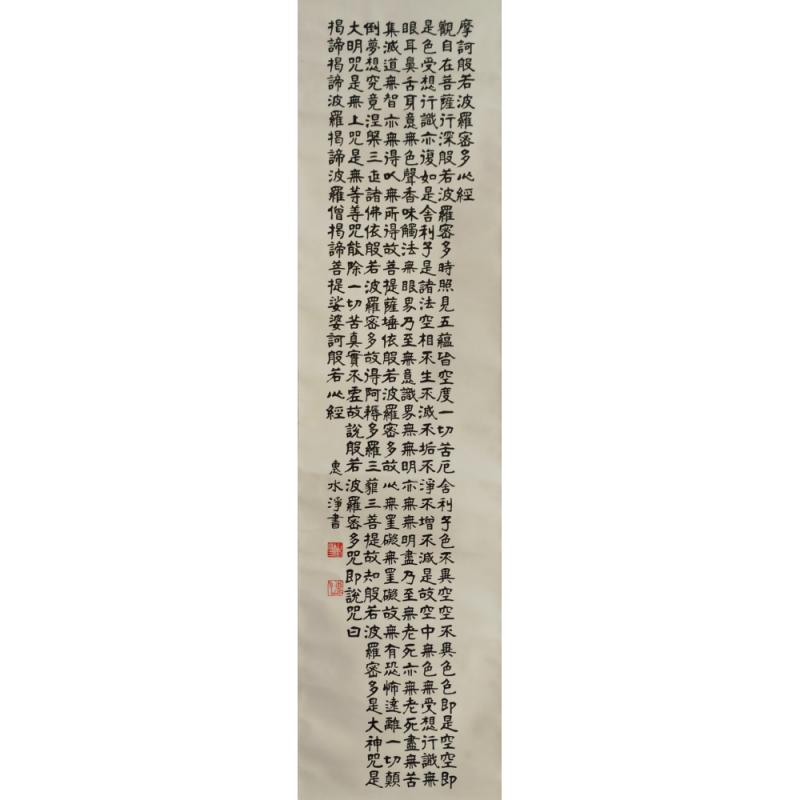 摩訶般若波羅密多心經
觀自在菩薩行深般若波羅密多時照見五蘊皆空度一切苦厄舍利子色不異空空不異色色即是空空即
是色受想行識亦復如是舍利子是諸法空相不生不滅不垢不淨不增不減是故空中無色無受想行識無
眼耳鼻舌身意無色聲香味觸法無眼界乃至無意識界無無明亦無無明盡乃至無老死亦無老死盡無苦
集滅道無智亦無得以無所得故菩提薩埵依般若波羅密多故心無罣礙無罣礙故無有恐怖遠離一切顛
倒夢想究竟涅槃三世諸佛依般若波羅密多故得阿耨多羅三藐三菩提故知般若波羅密多是大神咒是
大明咒是無上咒是無等等咒能除一切苦真實不虛故說般若波羅密多咒即說咒曰
揭諦揭諦波羅揭諦波羅僧揭諦菩提娑婆訶般若心經
惠水淨書